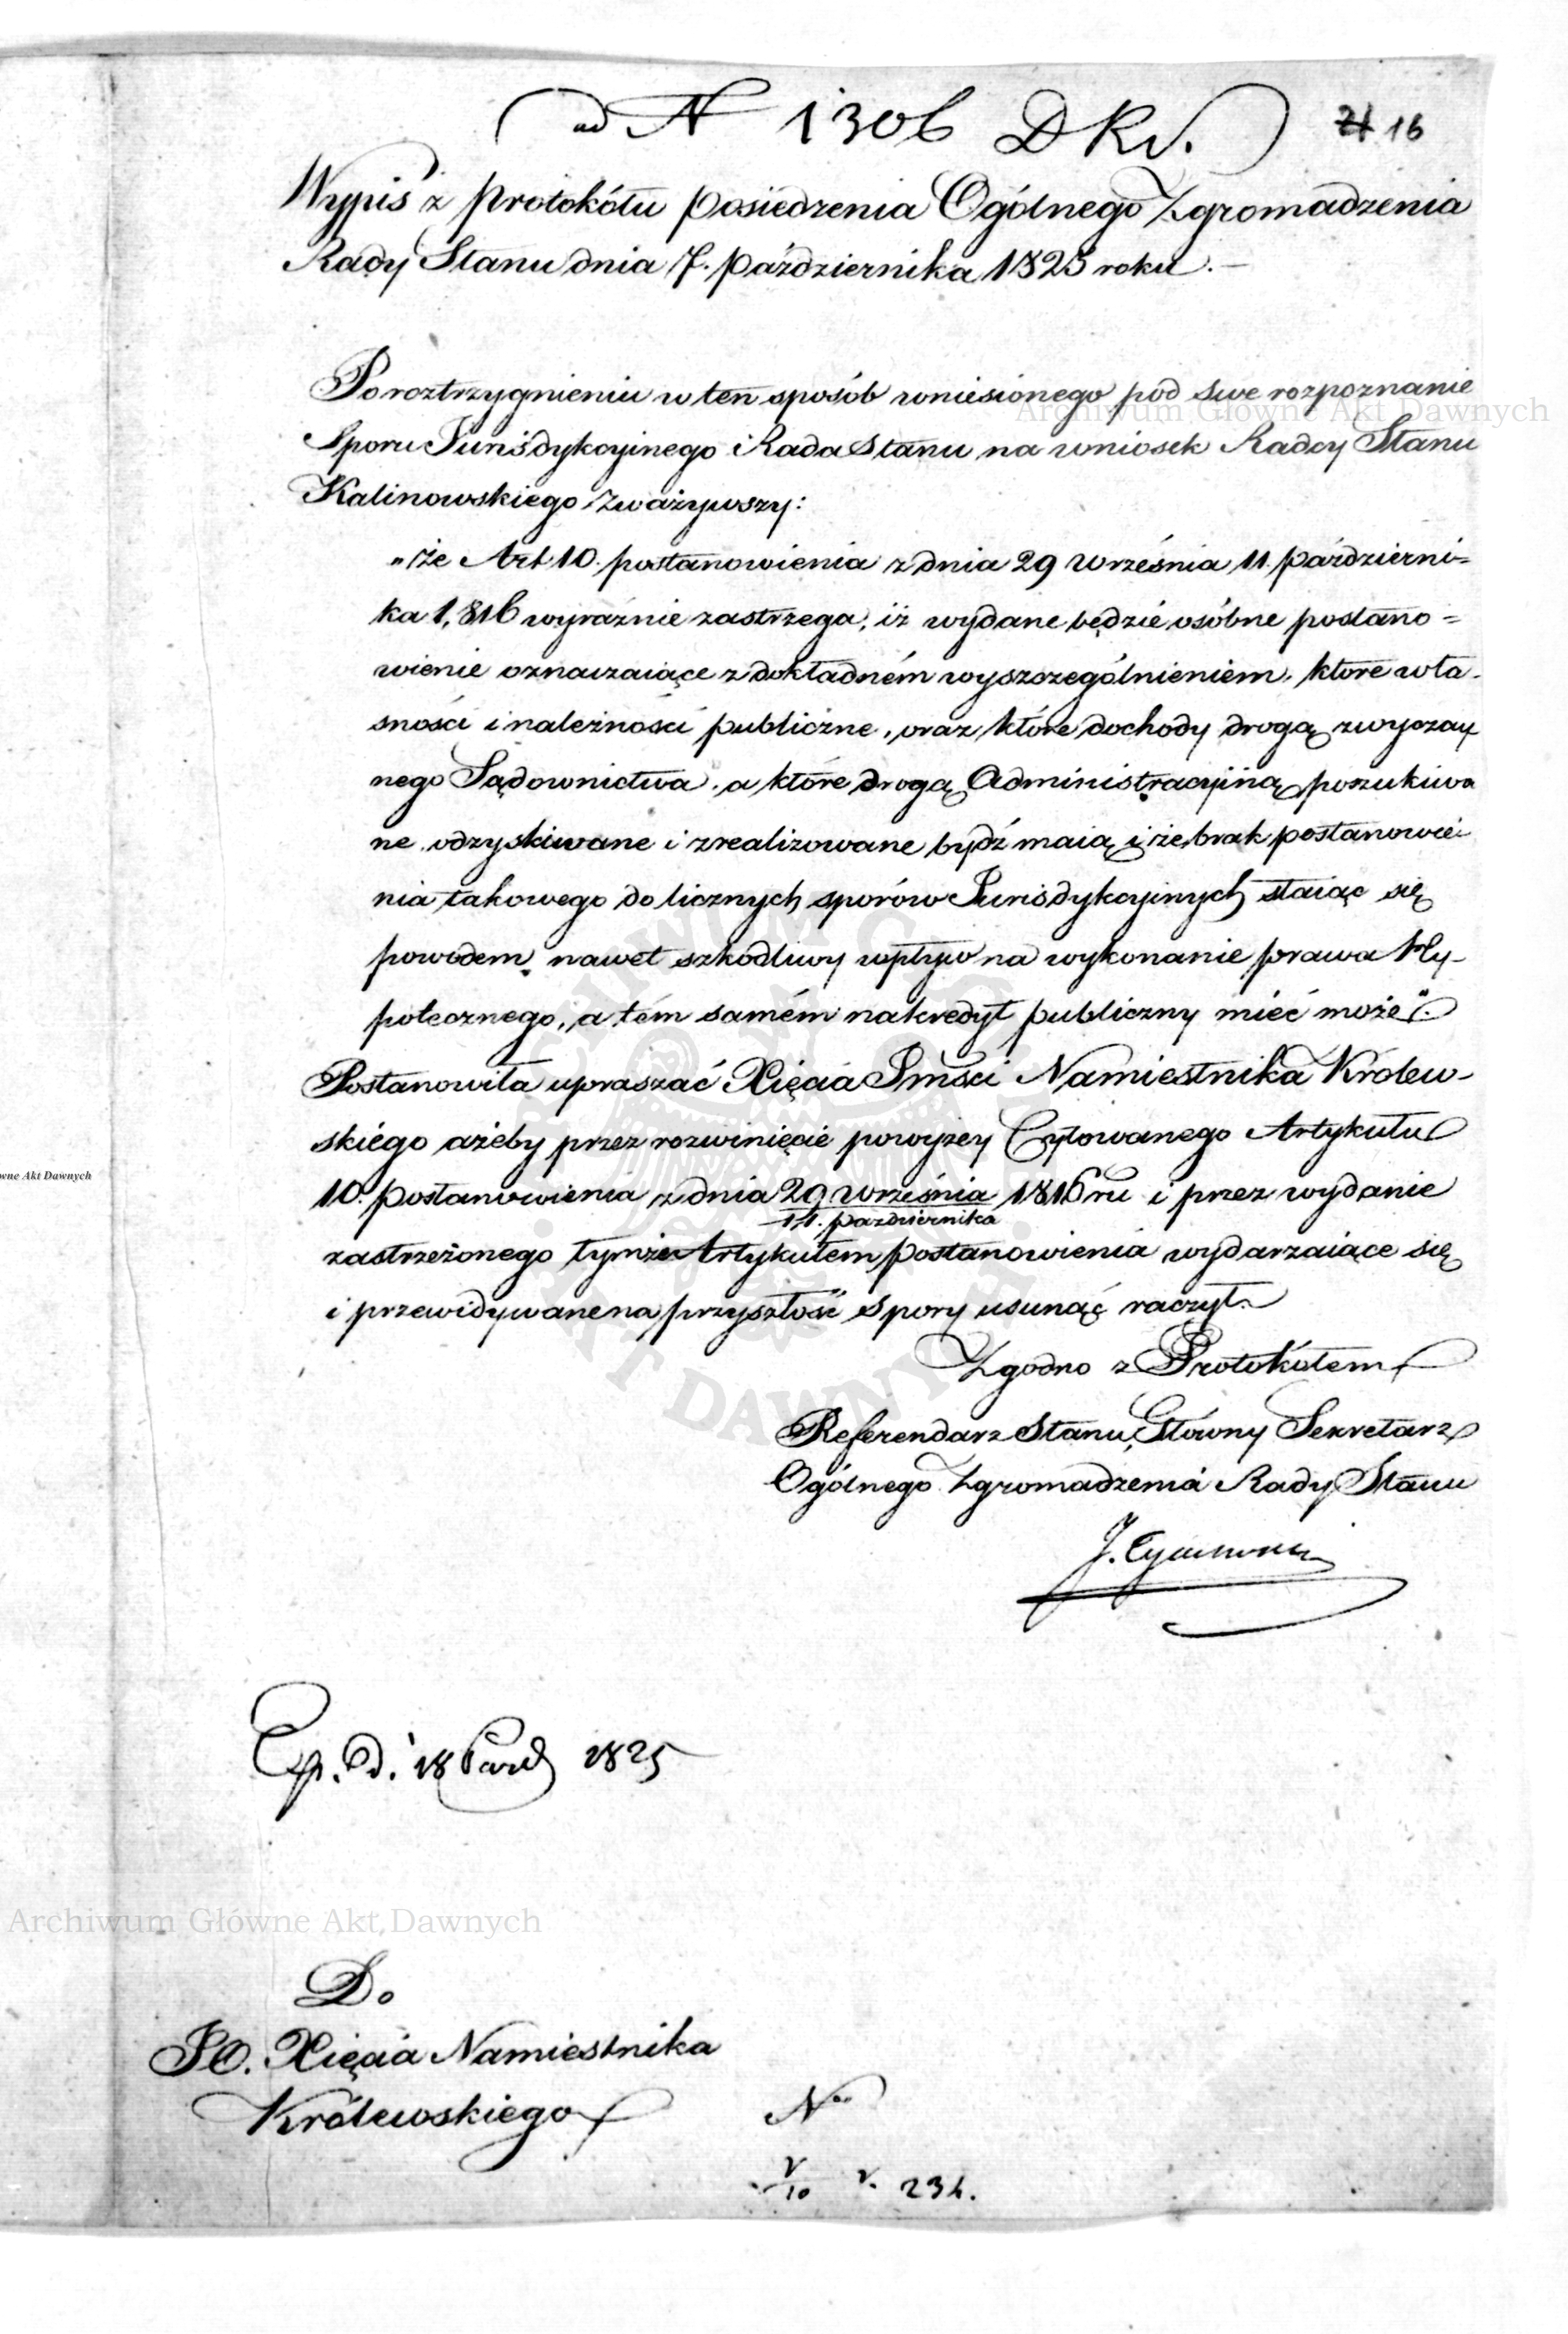 ad N 1306 D K v. 21 16
Wypis z protokółu posiedzenia Ogólnego Zgromadzenia
Rady Stanu dnia 7. października 1825 roku.—
Po roztrzygnieniu w ten sposób wniesionego pod swe rozpoznanie
Archiwum Główne Akt Dawnych
Sporu Jurisdykcyinego Rada Stanu na wniosek Radcy Stanu
Kalinowskiego zważywszy:
„że Art 10. postanowienia z dnia 29 września 11. październi=
ka 1,816 wyraźnie zastrzega, iż wydane będzie osóbne postano=
wienie oznaczaiące z dokładném wyszczególnieniem, które wła-
sności i należności publiczne, oraz które dochody drogą zwyczay
nego Sądownictwa, a które drogą Administracyiną poszukiwa
ne, odzyskiwane i zrealizowane bydź maią i że brak postanowie-
nia takowego do licznych sporów Jurisdykcyinych staiąc się
powodem, nawet szkodliwy wpływ na wykonanie prawa Hy-
potecznego, a tém samém na kredyt publiczny mieć może”.
Postanowiła upraszać Xięcia Jmści Namiestnika Królew-
skiego ażeby przez rozwinięcie powyżey Cytowanego Artykułu
10. postanowienia z dnia 29 września 1816 ru i przez wydanie
11. października
zastrzeżonego tymże Artykułem postanowienia wydarzaiące się
i przewidywane na przyszłość spory usunąć raczył.
Zgodno z Protokółem
Referendarz Stanu, Główny Sekretarz
Ogólnego Zgromadzenia Rady Stanu
J.
Exp. d. 18 Paźd 1825
Archiwum Główne Akt Dawnych
Do
JO. Xięcia Namiestnika
Królewskiego
N
10 v. 234.
wne Akt Dawnych
ARCHIWUM GŁÓWNE AKT DAWNYCH